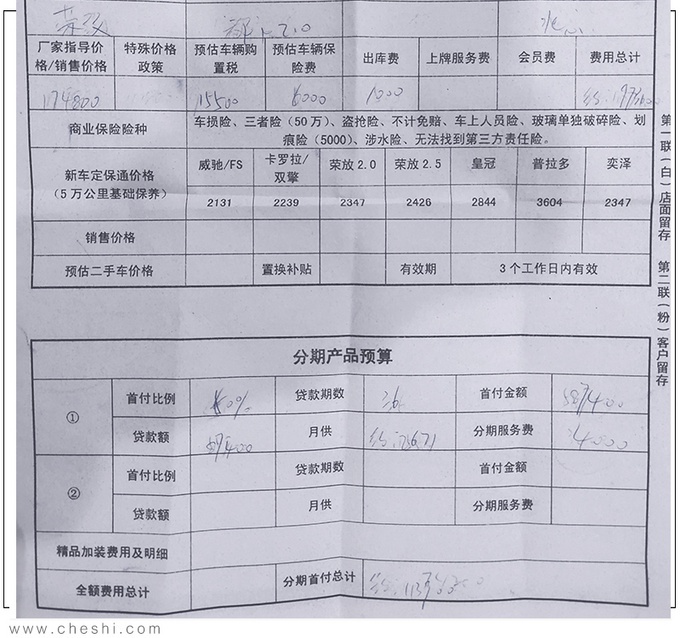 荣放
厂家指导价格/销售价格 特殊价格政策 预估车辆购置税 预估车辆保险费 出库费 上牌服务费 会员费 费用总计
174800 15500 6000 1000
商业保险险种 车损险、三者险（50万）、盗抢险、不计免赔、车上人员险、玻璃单独破碎险、划痕险（5000）、涉水险、无法找到第三方责任险。
新车定保通价格（5万公里基础保养） 威驰/FS 卡罗拉/双擎 荣放2.0 荣放2.5 皇冠 普拉多 奕泽
2131 2239 2347 2426 2844 3604 2347
销售价格
预估二手车价格 置换补贴 有效期 3个工作日内有效
分期产品预算
① 首付比例 贷款期数 36 首付金额
贷款额 87400 月供 分期服务费 4000
② 首付比例 贷款期数 首付金额
贷款额 月供 分期服务费
精品加装费用及明细
全额费用总计 分期首付总计
第一联（白）店面留存 第二联（粉）客户留存
www.cheshi.com